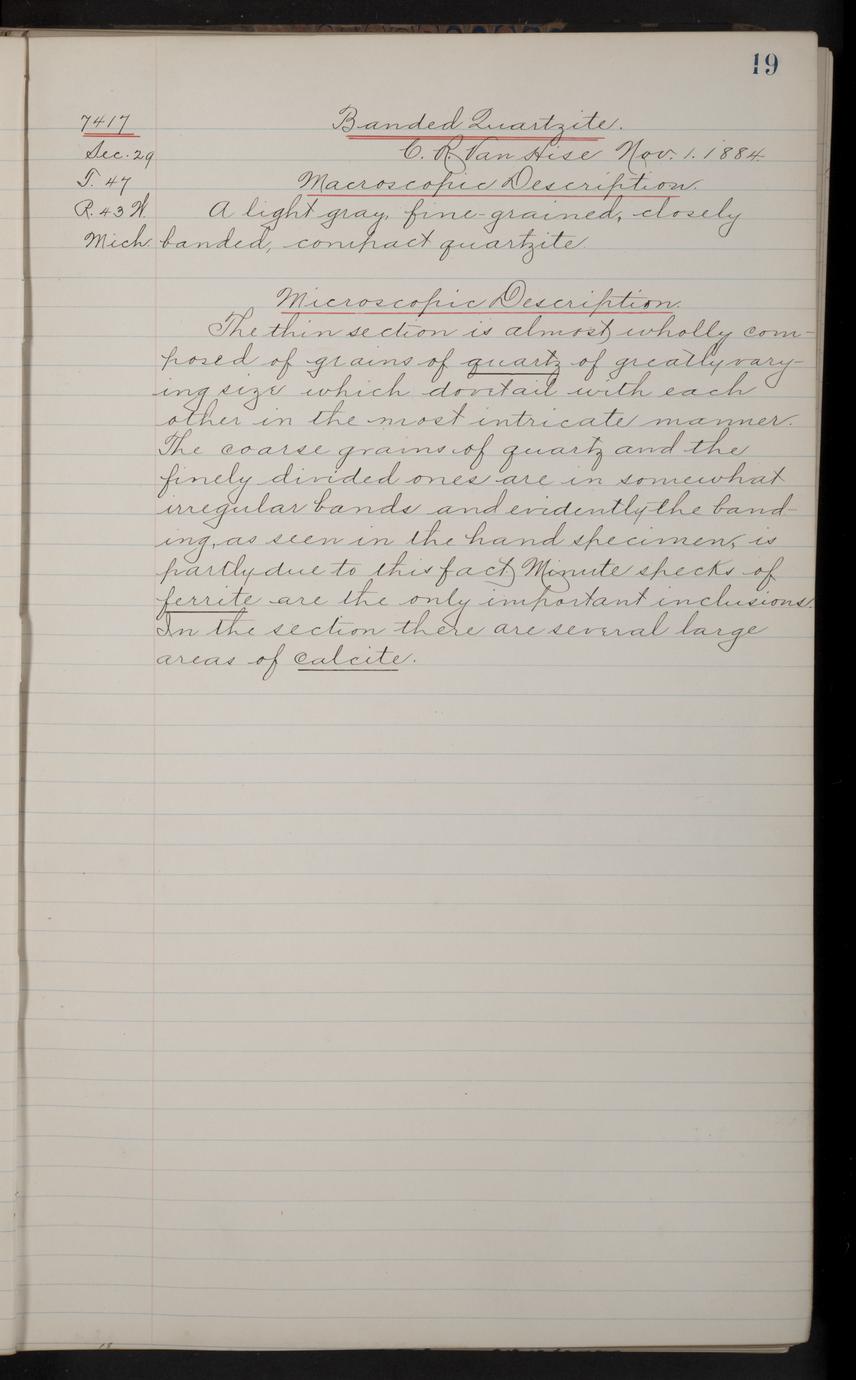 19
7417 Banded Quartzite.
Sec. 29 C. R. Van Hise Nov. 1. 1884.
T. 47 Macroscopic Description.
R. 43 W. A light gray, fine-grained, closely
Mich. banded, compact quartzite.
Microscopic Description.
The thin section is almost wholly com-
posed of grains of quartz of greatly vary-
ing size which dovetail with each
other in the most intricate manner.
The coarse grains of quartz and the
finely divided ones are in somewhat
irregular bands and evidently the band-
ing, as seen in the hand specimen, is
partly due to this fact. Minute specks of
ferrite are the only important inclusions.
In the section there are several large
areas of calcite.